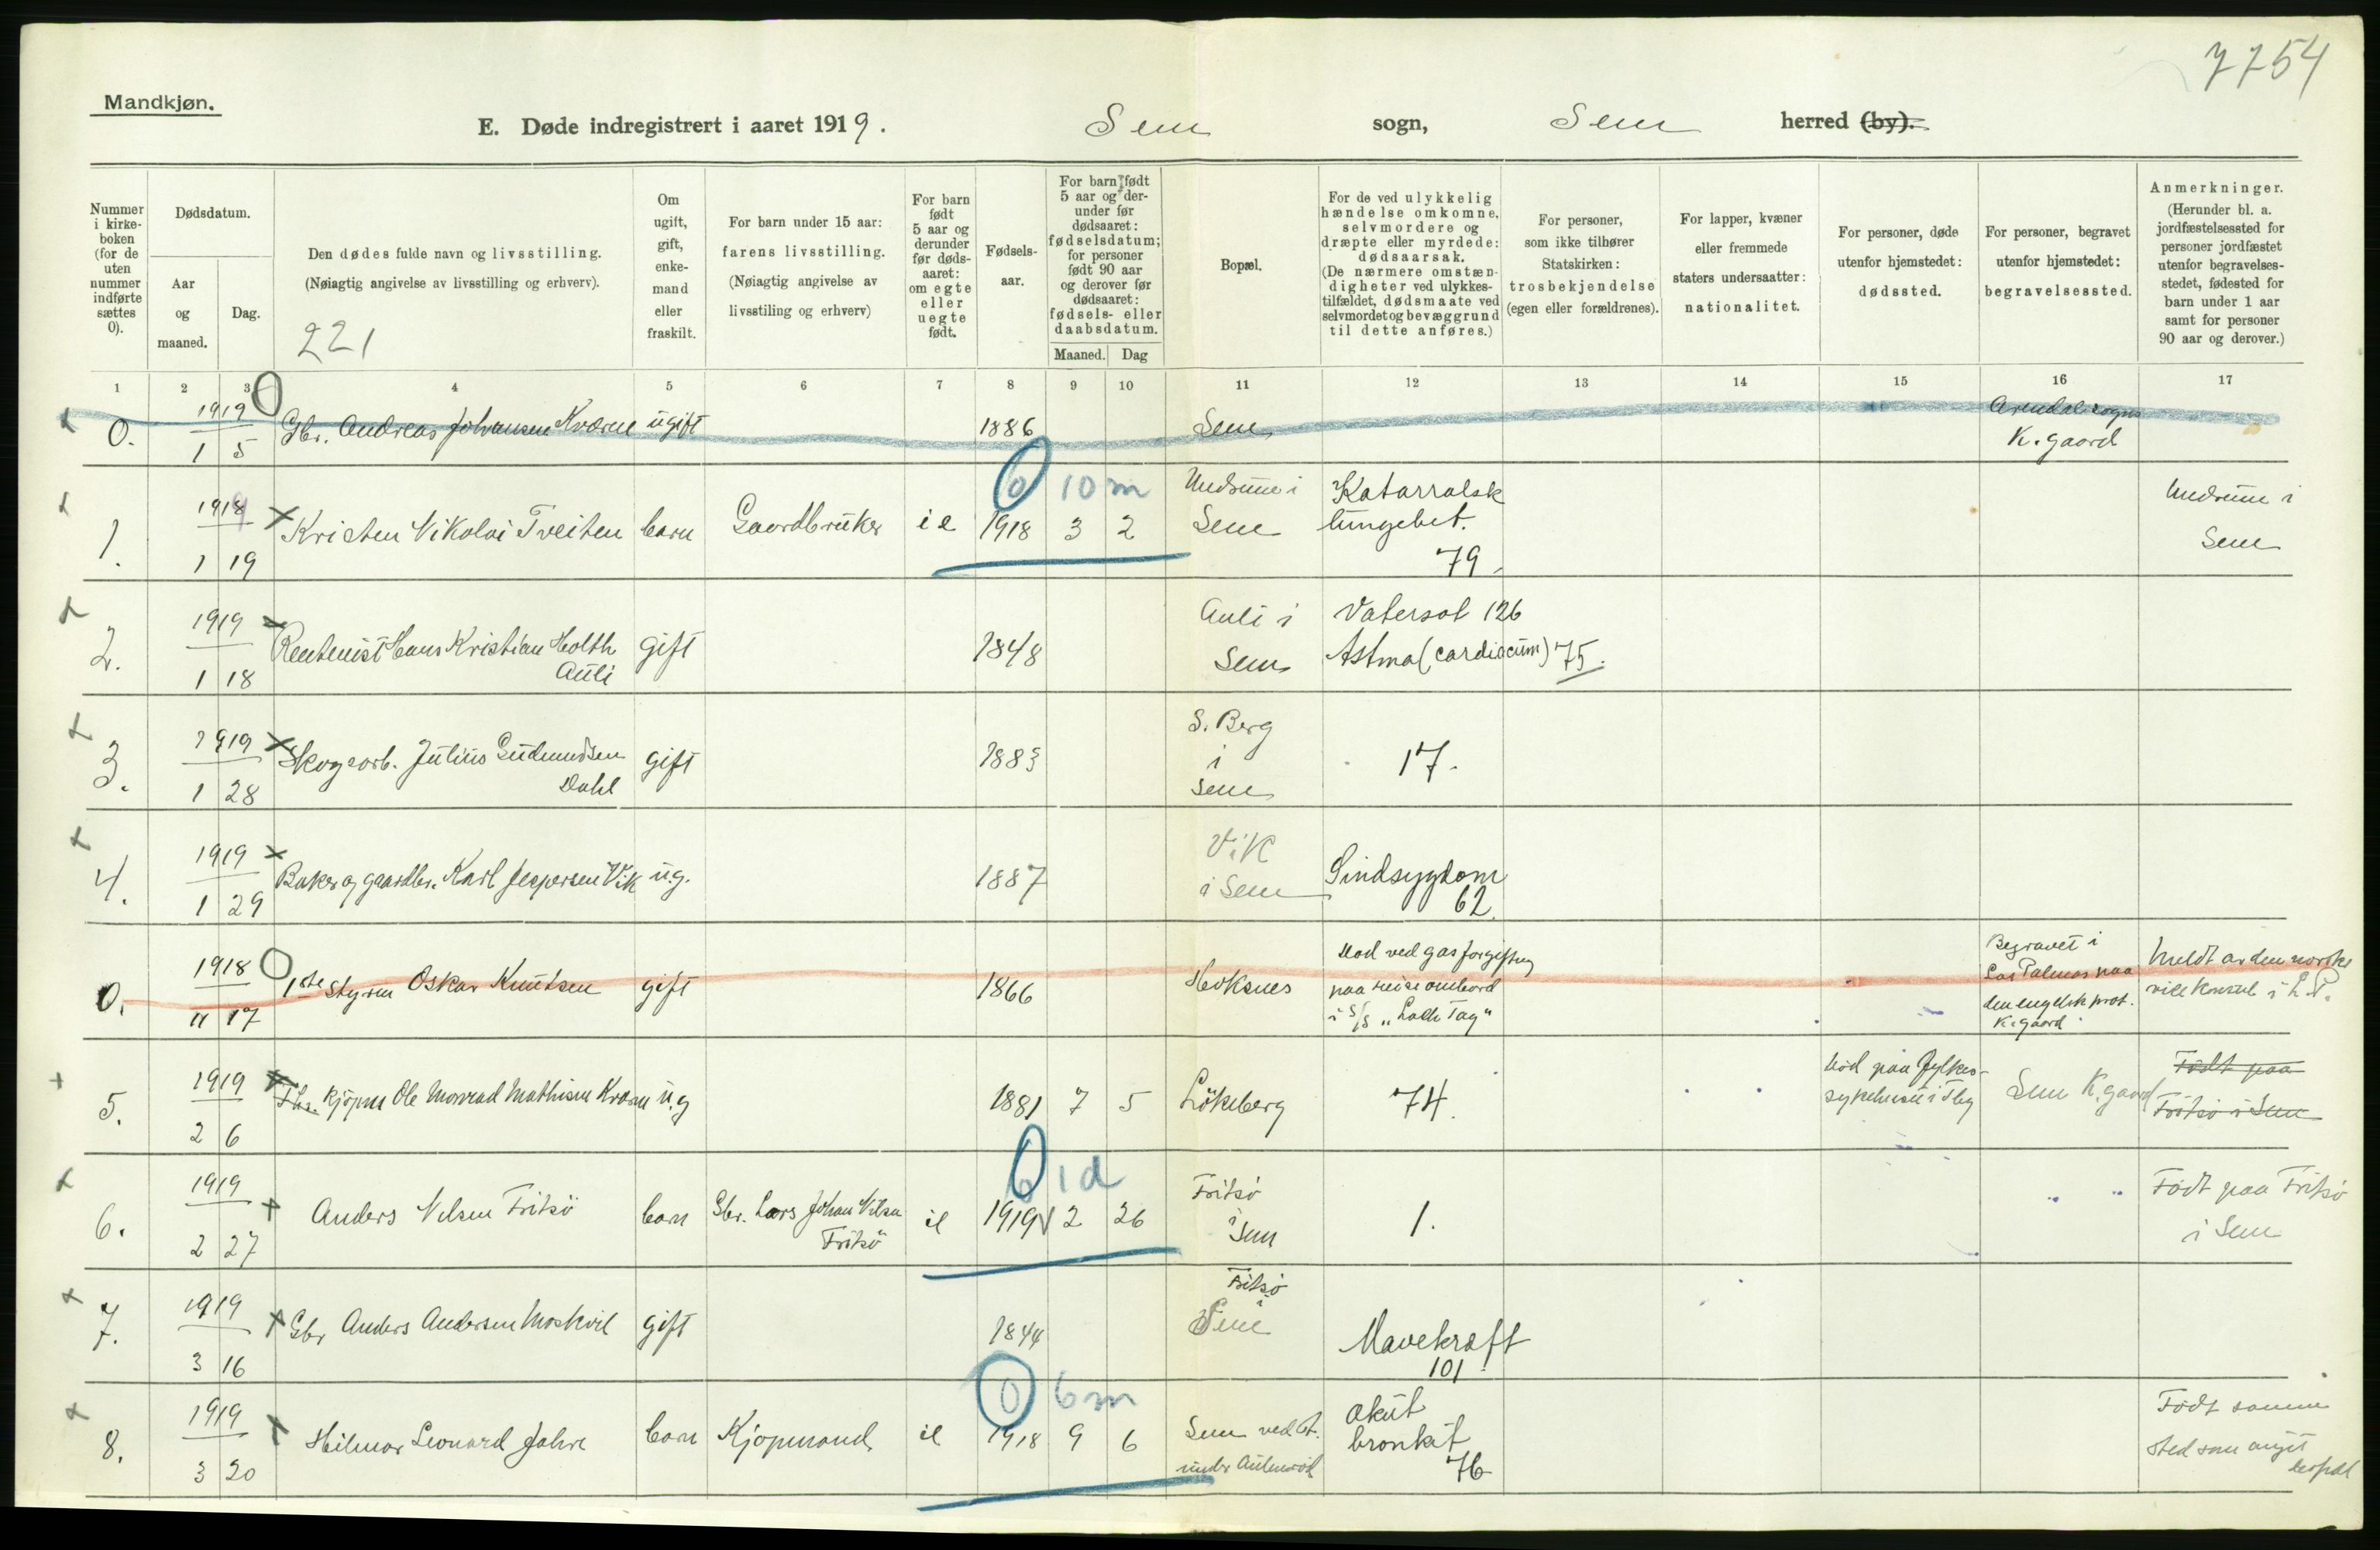 7754
Mandkjøn.
E. Døde indregistrert i aaret 1919. Sem sogn, Sem herred (by).
Nummer i kirke-boken (for de uten nummer indførte sættes 0).
Dødsdatum.
Aar og maaned.
Dag.
Den dødes fulde navn og livsstilling.
(Nøiagtig angivelse av livsstilling og erhverv).
221
Om ugift, gift, enke-mand eller fraskilt.
For barn under 15 aar:
farens livsstilling.
(Nøiagtig angivelse av livsstiling og erhverv)
For barn født 5 aar og derunder før døds-aaret: om egte eller uegte født.
Fødsels-aar.
For barn født 5 aar og der-under før dødsaaret: fødselsdatum; for personer født 90 aar og derover før dødsaaret: fødsels- eller daabsdatum.
Maaned. Dag
Bopæl.
For de ved ulykkelig hændelse omkomne, selvmordere og dræpte eller myrdede: dødsaarsak.
(De nærmere omstæn-digheter ved ulykkes-tilfældet, dødsmaate ved selvmordet og bevæggrund til dette anføres.)
For personer, som ikke tilhører Statskirken: trosbekjendelse (egen eller forældrenes).
For lapper, kvæner eller fremmede staters undersaatter: nationalitet.
For personer, døde utenfor hjemstedet: dødssted.
For personer, begravet utenfor hjemstedet: begravelsessted.
Anmerkninger.
(Herunder bl. a. jordfæstelsessted for personer jordfæstet utenfor begravelses-stedet, fødested for barn under 1 aar samt for personer 90 aar og derover.)
1 2 3 4 5 6 7 8 9 10 11 12 13 14 15 16 17
0. 1919 1 5 Gbr. Andreas Johansen Kværne ugift 1886 Sem Arendal sogns K.gaard
0 10 m
1. 1919 1 19 Kristen Nikolai Tveiten barn Gaardbruker ie 1918 3 2 Undrum i Sem Katarralsk lungebet. 79. Undrum i Sem
2. 1919 1 18 Rentenist Hans Kristian Holth Auli gift 1848 Auli i Sem Vatersot 126 Astma (cardiacum) 75.
3. 1919 1 28 Skogsarb. Julius Gudmundsen Dahl gift 1883 S. Berg i Sem 17.
4. 1919 1 29 Baker og gaardbr. Karl Jespersen Vik ug. 1887 Vik i Sem Sindsygdom 62.
0. 1918 11 17 1ste styrm Oskar Knutsen gift 1866 Død ved gasforgiftning paa reise ombord i S/S Begravet i Las Palmas paa den engelsk prot. K.gaard Meldt av den norske vicekonsul i L. P.
5. 1919 2 6 Ole Monrad Mathisen u.g 1881 7 5 Lökeberg 74. Död paa Fylkes-sykehuset i Tbg Sem K.gaard Födt paa Fritsö i Sem
0 1 d
6. 1919 2 27 Anders Nilsen Fritsö barn Gbr. Lars Johan Nilsen Fritsö ie 1919 2 26 Fritsö i Sem 1. Födt paa Fritsö i Sem
7. 1919 3 16 Gbr Anders Andersen gift 1844 Fritsö i Sem Mavekræft 101.
0 6 m
8. 1919 3 20 Hilmar Leonard Jahre barn Kjöpmand ie 1918 9 6 Sem ved st. under akut bronkit 76 Födt samme sted som angit bopæl